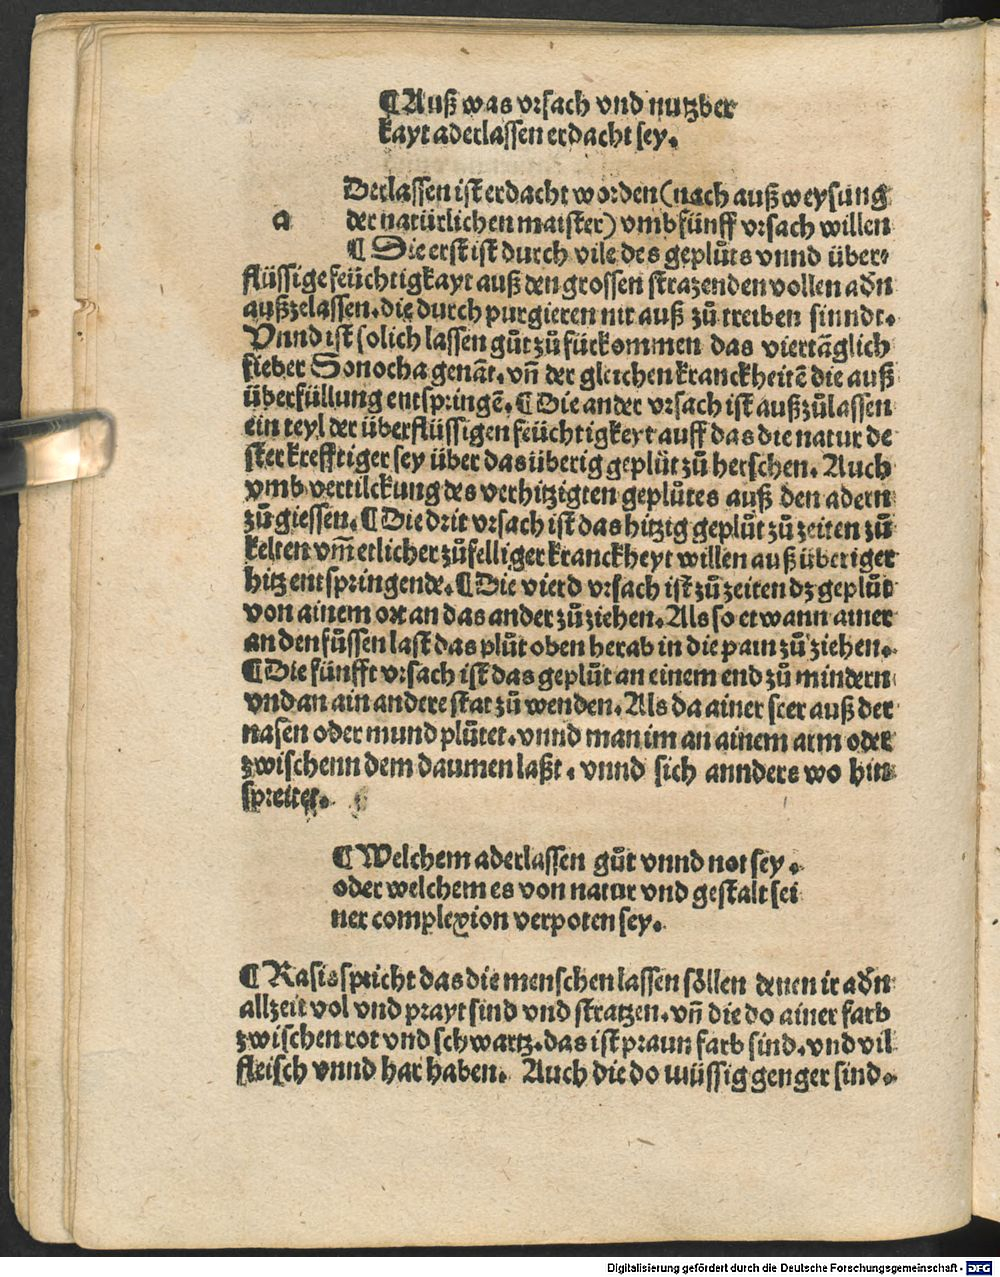 ¶ Auß was vrsach vnd nutzber
kayt aderlassen erdacht sey.
Derlassen ist erdacht worden (nach außweysung
a der natürlichen maister) vmb fünff vrsach willen
¶ Die erst ist durch vile des geplůts vnnd über⸗
flüssige feüchtigkayt auß den grossen strazenden vollen adn̄
außzelassen. die durch purgieren nit auß zů treiben sinndt.
Vnnd ist solich lassen gůt zů fürkommen das viertäglich
fieber Sonocha genāt. vn̄ der gleichen kranckheitē die auß
überfüllung entspringē. ¶ Die ander vrsach ist außzůlassen
ein teyl der überflüssigen feüchtigkeyt auff das die natur de
ster krefftiger sey über das überig geplüt zů herschen. Auch
vmb vertilckung des verhitzigten geplůtes auß den adern
zů giessen. ¶ Die drit vrsach ist das hitzig geplůt zů zeiten zů
kelten vm̄ etlicher zůfelliger kranckheyt willen auß überiger
hitz entspringende. ¶ Die vierd vrsach ist zů zeiten dz geplůt
von ainem ort an das ander zůziehen. Als so etwann ainer
an den fůssen last das plůt oben herab in die pain zů ziehen.
¶ Die fünfft vrsach ist das geplůt an einem end zů mindern
vnd an ain andere stat zů wenden. Als da ainer seer auß der
nasen oder mund plůtet. vnnd man im an ainem arm oder
zwischenn dem daumen laßt. vnnd sich annders wo hin
spreitet.
¶ Welchem aderlassen gůt vnnd not sey.
oder welchem es von natur vnd gestalt sei
ner complexion verpoten sey.
¶ Rasis spricht das die menschen lassen söllen denen ir adn̄
allzeit vol vnd prayt sind vnd stratzen. vn̄ die do ainer farb
zwischen rot vnd schwartz. das ist praun farb sind. vnd vil
fleisch vnnd har haben. Auch die do müssig genger sind.
Digitalisierung gefördert durch die Deutsche Forschungsgemeinschaft - DFG